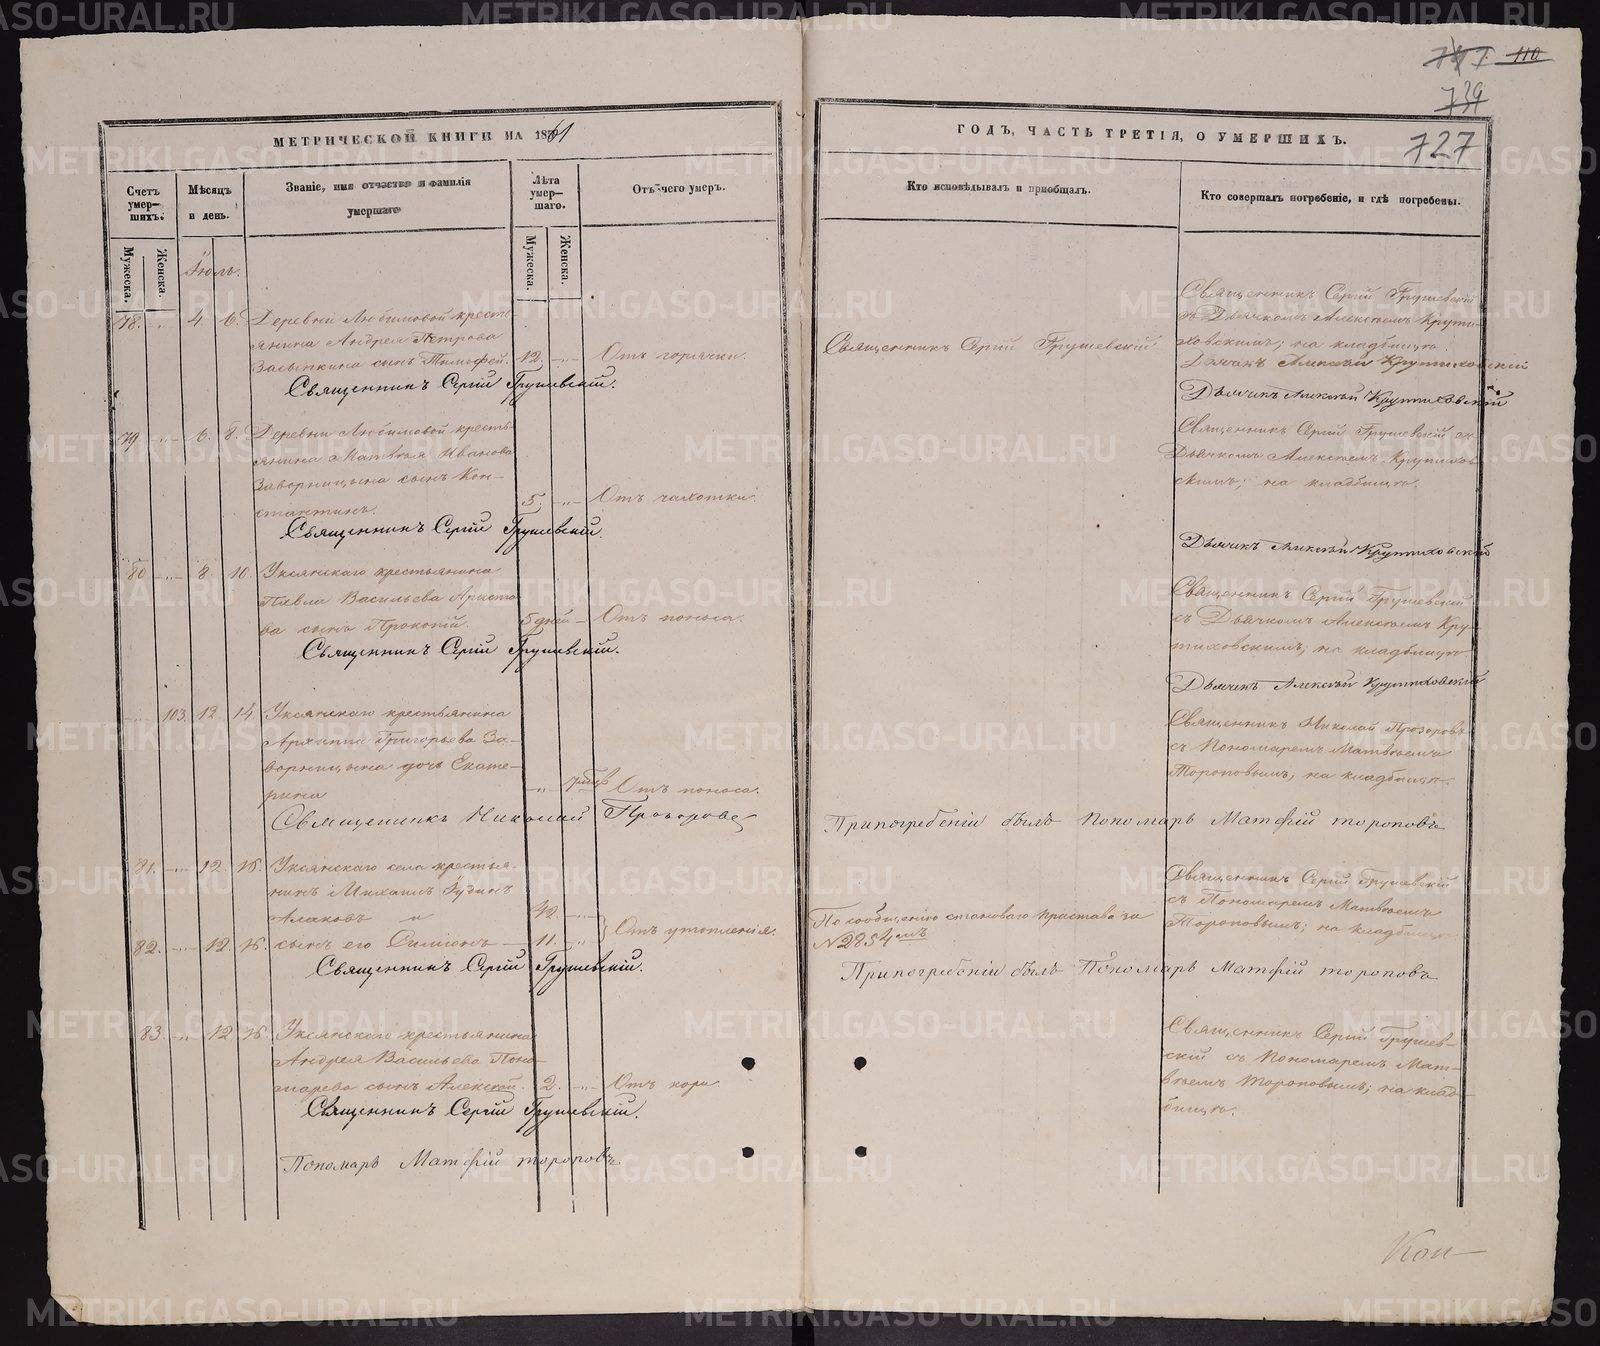 747 110
739
727
МЕТРИЧЕСКОЙ КНИГИ НА 1861
ГОДЪ, ЧАСТЬ ТРЕТІЯ, О УМЕРШИХЪ.
Счетъ умер-шихъ.
Мужеска.
Женска.
Мѣсяцъ и день.
Званіе, имя отчество и фамилія
умершаго
Лѣта умер-шаго.
Мужеска.
Женска.
Отъ чего умеръ.
Кто исповѣдывалъ и пріобщалъ.
Кто совершалъ погребеніе, и гдѣ погребены.
Іюль.
78. 4. 6. Деревни Любимовой кресть-
янина Андрея Петрова
Засыпкина сынъ Тимофей. 12. Отъ горячки.
Священникъ Сергій Грушевскій.
Священникъ Сергій Грушевскій.
Священникъ Сергій Грушевскій
съ Дьячкомъ Алексѣемъ Крути-
ховскимъ; на кладбищѣ.
Дьячекъ Алексѣй Крутиховскій
Дьячекъ Алексѣй Крутиховскій
79 6. 8. Деревни Любимовой кресть-
янина Матвѣя Иванова
Заворницына сынъ Кон-
стантинъ. 5. Отъ чахотки.
Священникъ Сергій Грушевскій.
Священникъ Сергій Грушевскій съ
Дьячкомъ Алексѣемъ Крутихов-
скимъ; на кладбищѣ.
Дьячекъ Алексѣй Крутиховскій
80 8. 10. Уксянскаго крестьянина
Павла Васильева Аристо-
ва сынъ Прокопій. 5 дней Отъ поноса.
Священникъ Сергій Грушевскій.
Священникъ Сергій Грушевскій
съ Дьячкомъ Алексѣемъ Кру-
тиховскимъ; на кладбищѣ
Дьячекъ Алексѣй Крутиховскій
103. 12. 14. Уксянскаго крестьянина
Архиппа Григорьева За-
ворницына дочь Екате-
рина Отъ поноса.
Священникъ Николай Прозоровъ
Священникъ Николай Прозоровъ
съ Пономаремъ Матвѣемъ
Тороповымъ, на кладбищѣ.
Припогребеніи былъ Пономарь Матфій тороповъ
81. 12. 16. Уксянскаго села крестья-
нинъ Михаилъ
и 42.
82. 12. 16. сынъ его Симеонъ 11. Отъ утопленія.
Священникъ Сергій Грушевскій.
По сообщенію становаго пристава за
№ 2254мъ
Священникъ Сергій Грушевскій
съ Пономаремъ Матвѣемъ
Тороповымъ; на кладбищѣ.
Припогребеніи былъ Пономарь Матфій тороповъ
83. 12 16. Уксянскаго крестьянина
Андрея Васильева Поно-
марева сынъ Алексѣй. 2. Отъ кори.
Священникъ Сергій Грушевскій.
Пономарь Матфій тороповъ
Священникъ Сергій Грушев-
скій съ Пономаремъ Мат-
вѣемъ Тороповымъ; на клад-
бищѣ.
Кон-
METRIKI.GASO-URAL.RU